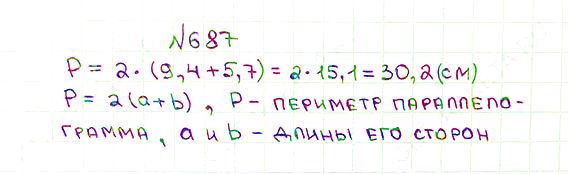 №687
P = 2·(9,4+5,7) = 2·15,1 = 30,2(см)
P = 2(a+b), P – периметр параллело-
грамма, a и b – длины его сторон